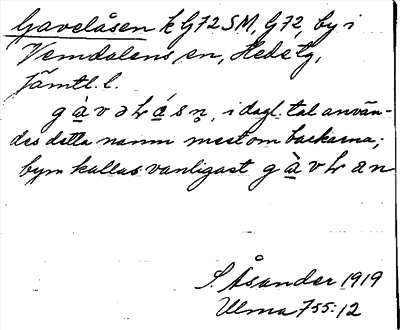 Gavelåsen k G72SM, G72, by i
Vemdalens sn, Hede tg,
Jämtl. l.
gàvəɫásn̥, i dagl. tal använ-
des detta namn mest om backarna;
byn kallas vanligast gàvɫan
S. Åsander 1919
Ulma 755:12